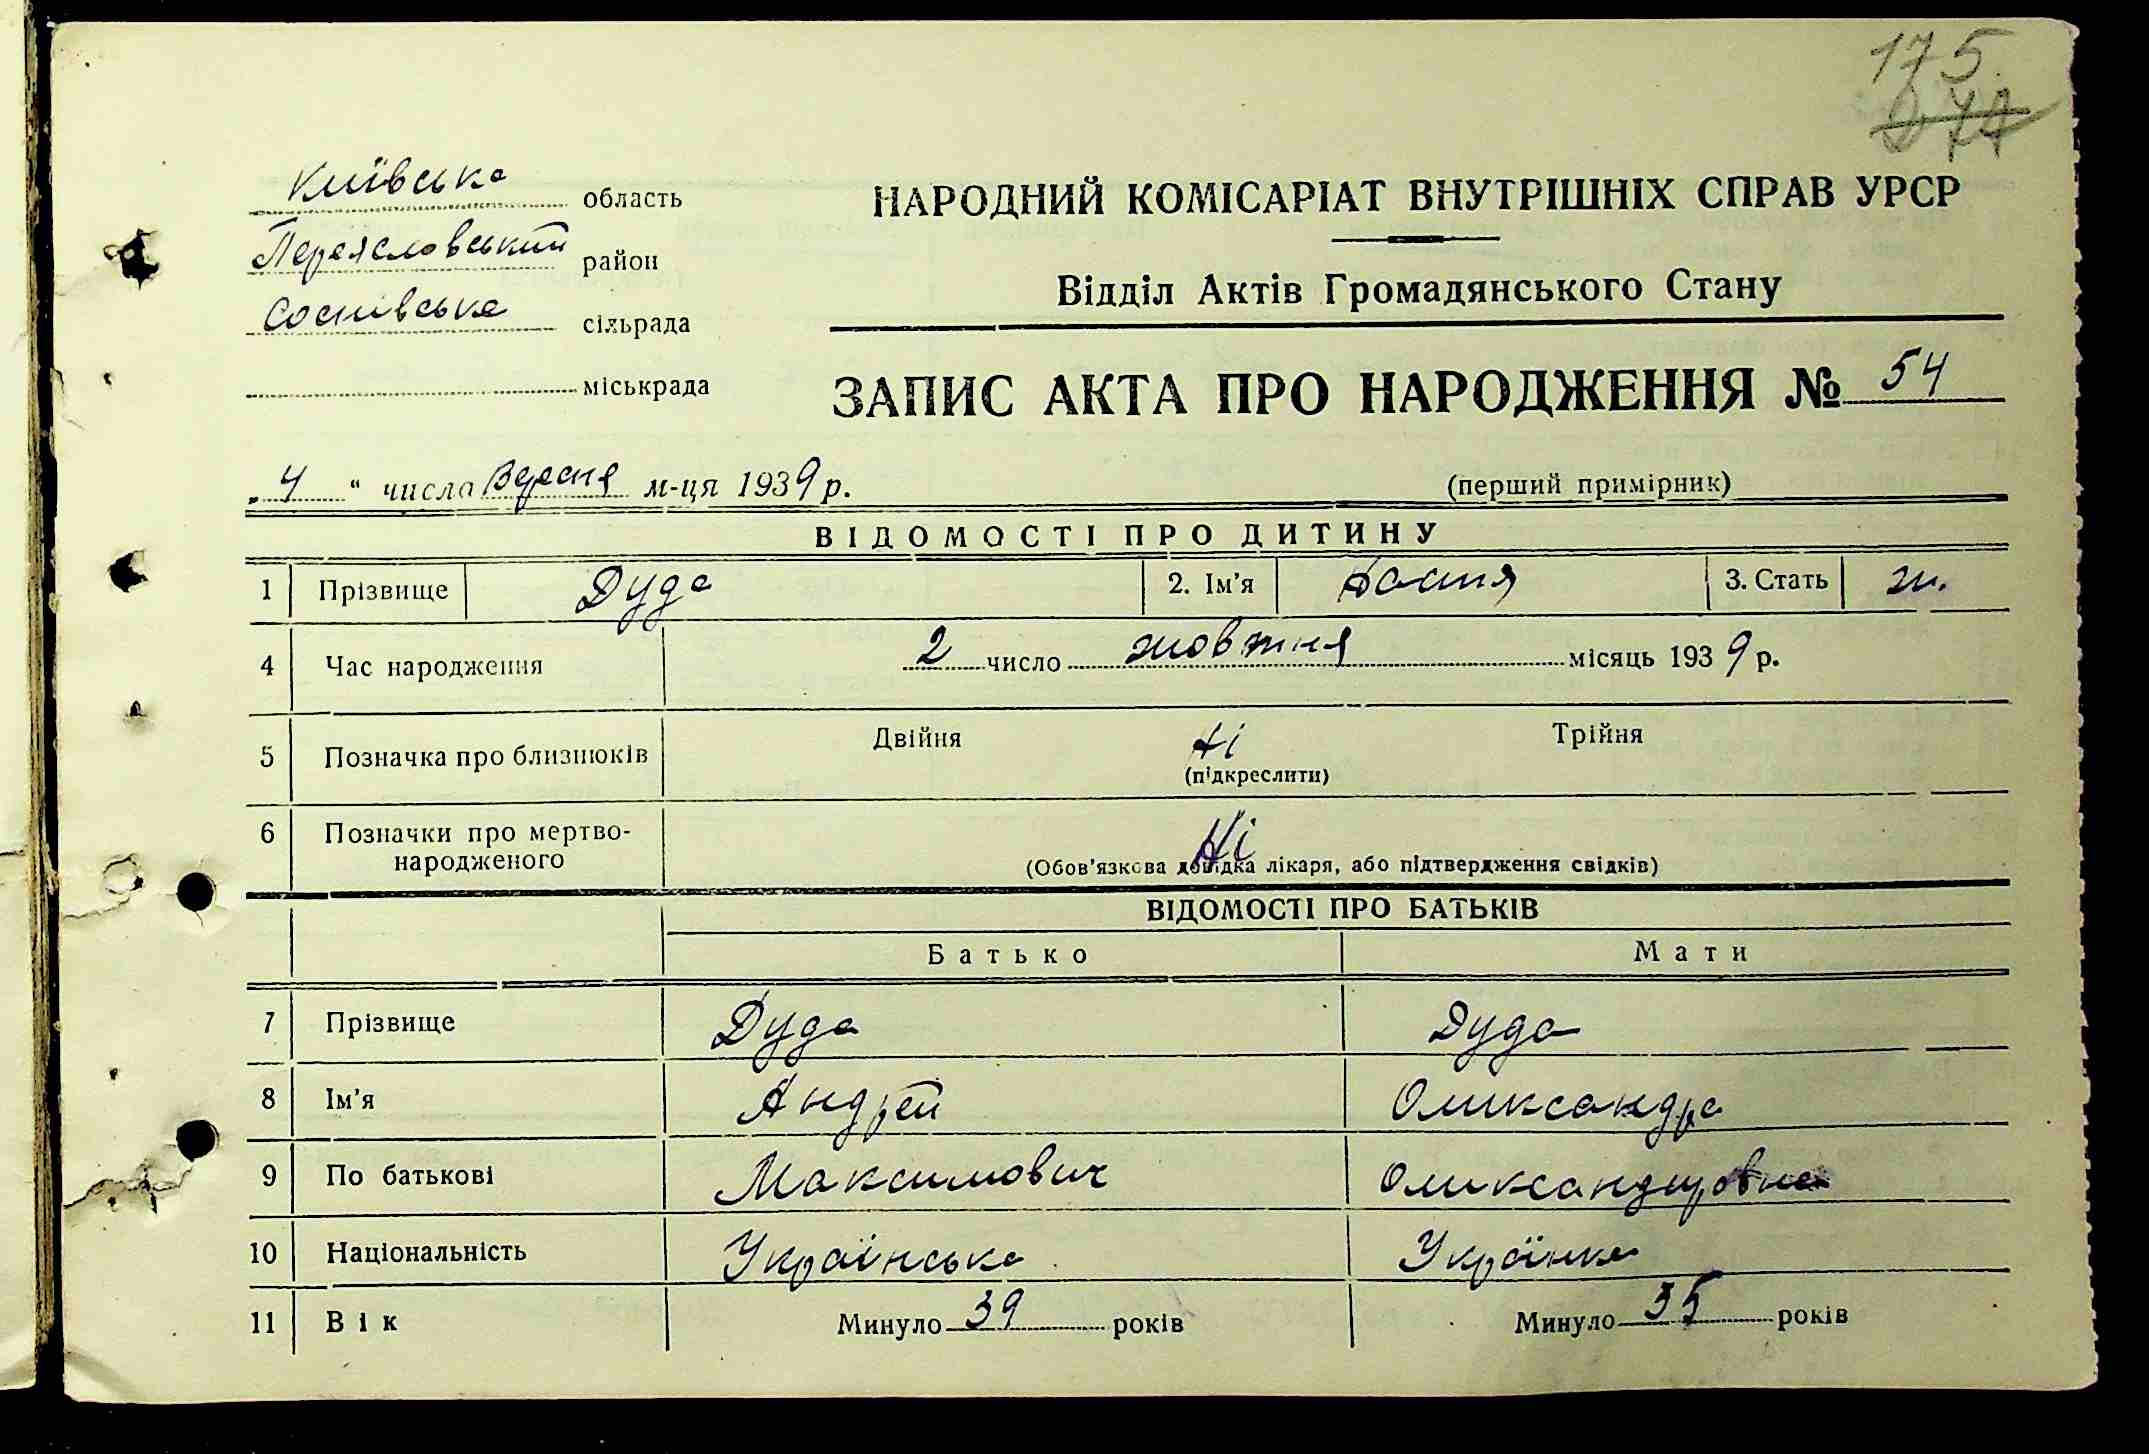 175.
Київська область
Переясловський район
Соснівська сільрада
міськрада
НАРОДНИЙ КОМІСАРІАТ ВНУТРІШНІХ СПРАВ УРСР
Відділ Актів Громадянського Стану
ЗАПИС АКТА ПРО НАРОДЖЕННЯ № 54
„4“ числа Вересня м-ця 1939 р.
(перший примірник)
ВІДОМОСТІ ПРО ДИТИНУ
1 Прізвище Дуда 2. Ім'я 3. Стать ж.
4 Час народження 2 число жовтня місяць 1939 р.
5 Позначка про близнюків Двійня Ні Трійня
(підкреслити)
6 Позначки про мертво-
народженого Ні
(Обов'язкова довідка лікаря, або підтвердження свідків)
ВІДОМОСТІ ПРО БАТЬКІВ
Батько Мати
7 Прізвище Дуда Дуда
8 Ім'я Андрей Олександра
9 По батькові Максимович Олександровна
10 Національність Українська Українка
11 Вік Минуло 39 років Минуло 35 років